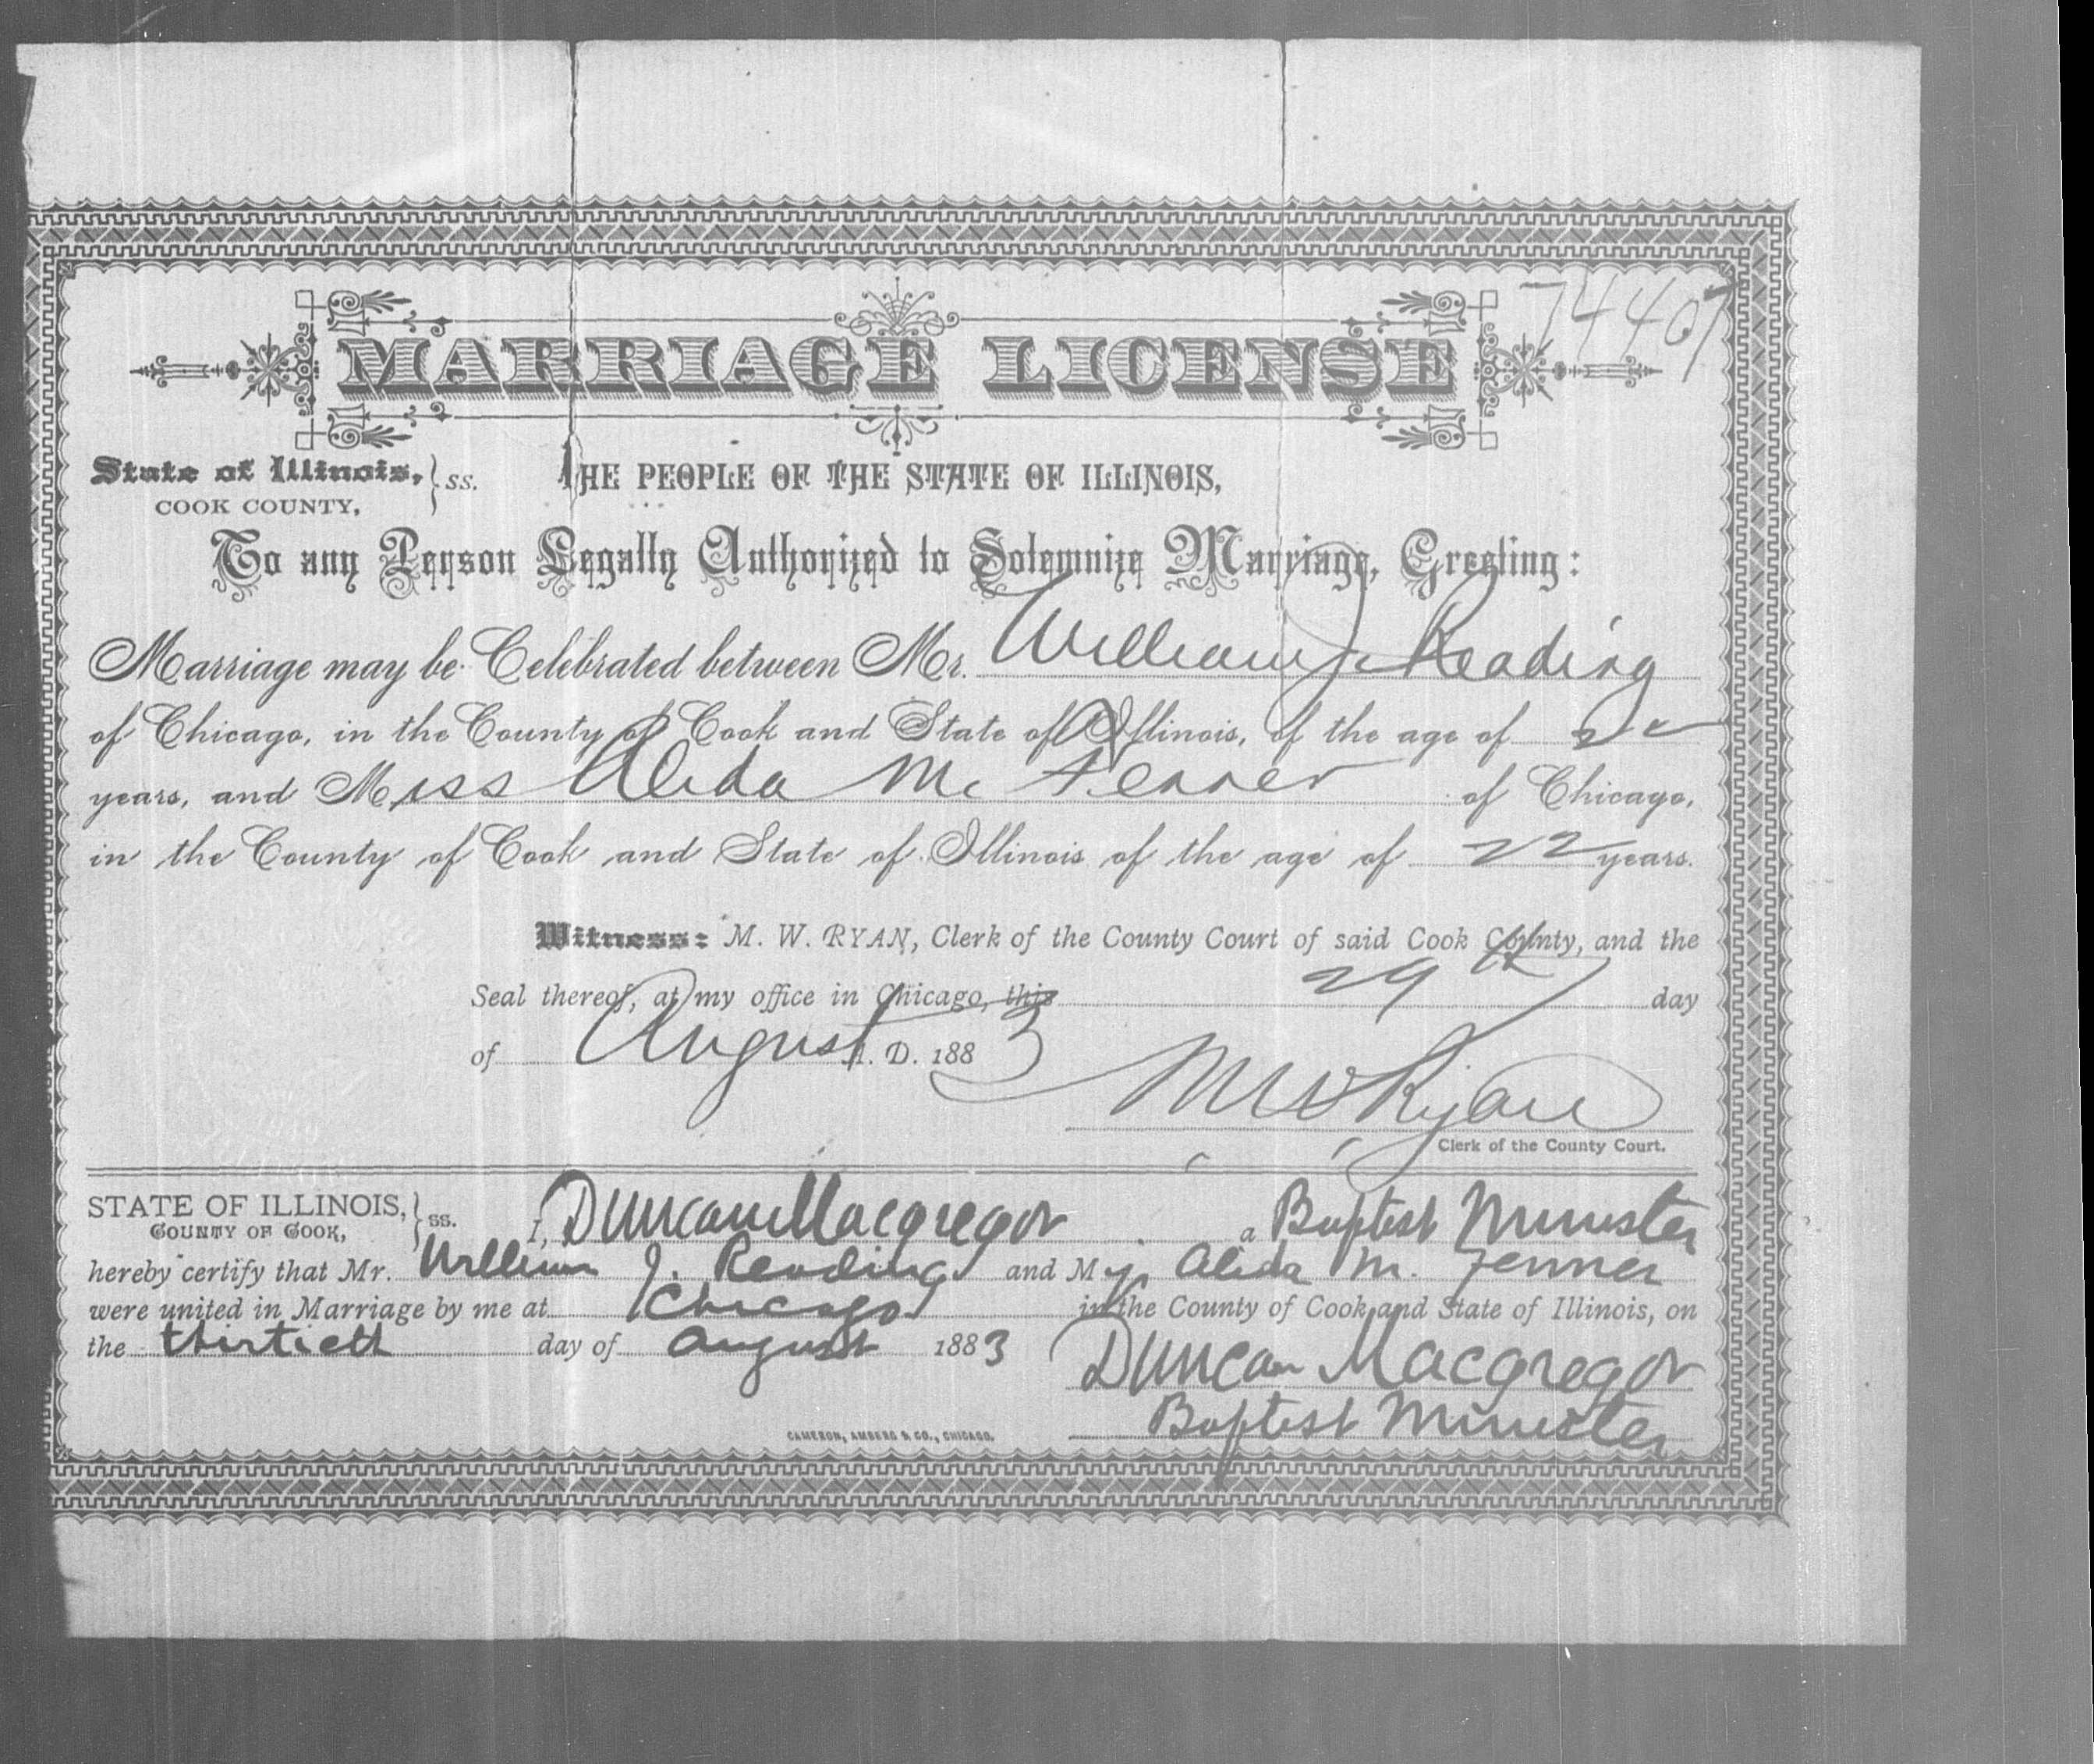 74407
MARRIAGE LICENSE
State of Illinois, } ss. THE PEOPLE OF THE STATE OF ILLINOIS,
COOK COUNTY,
To any Person Legally Authorized to Solemnize Marriage, Greeting:
Marriage may be Celebrated between Mr. William J. Reading
of Chicago, in the County of Cook and State of Illinois, of the age of 22
years, and Miss Alida M. Fenner of Chicago,
in the County of Cook and State of Illinois of the age of 22 years.
Witness: M. W. RYAN, Clerk of the County Court of said Cook County, and the
Seal thereof, at my office in Chicago, this 29th day
of August A. D. 1883
M W Ryan
Clerk of the County Court.
STATE OF ILLINOIS, } ss. I, Duncan Macgregor a Baptist Minister
COUNTY OF COOK,
hereby certify that Mr. William J. Reading and M Alida M. Fenner
were united in Marriage by me at Chicago in the County of Cook and State of Illinois, on
the thirtieth day of August 1883 Duncan Macgregor
Baptist Minister
CAMERON, AMBERG & CO., CHICAGO.